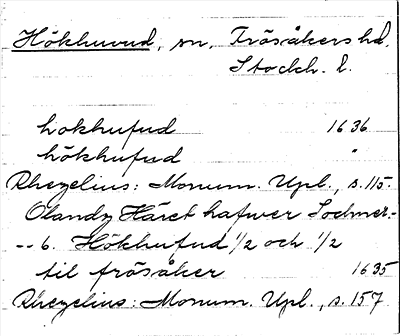 Hökhuvud, sn, Frösåkers hd,
Stockh. l.
hokhufud 1636
hökhufud "
Rhezelius: Monum. Upl., s. 115.
Ölandz Häret hafwer Sochner-
-- 6. Hökhufud 1/2 och 1/2
til frösåker 1635
Rhezelius: Monum. Upl., s. 157